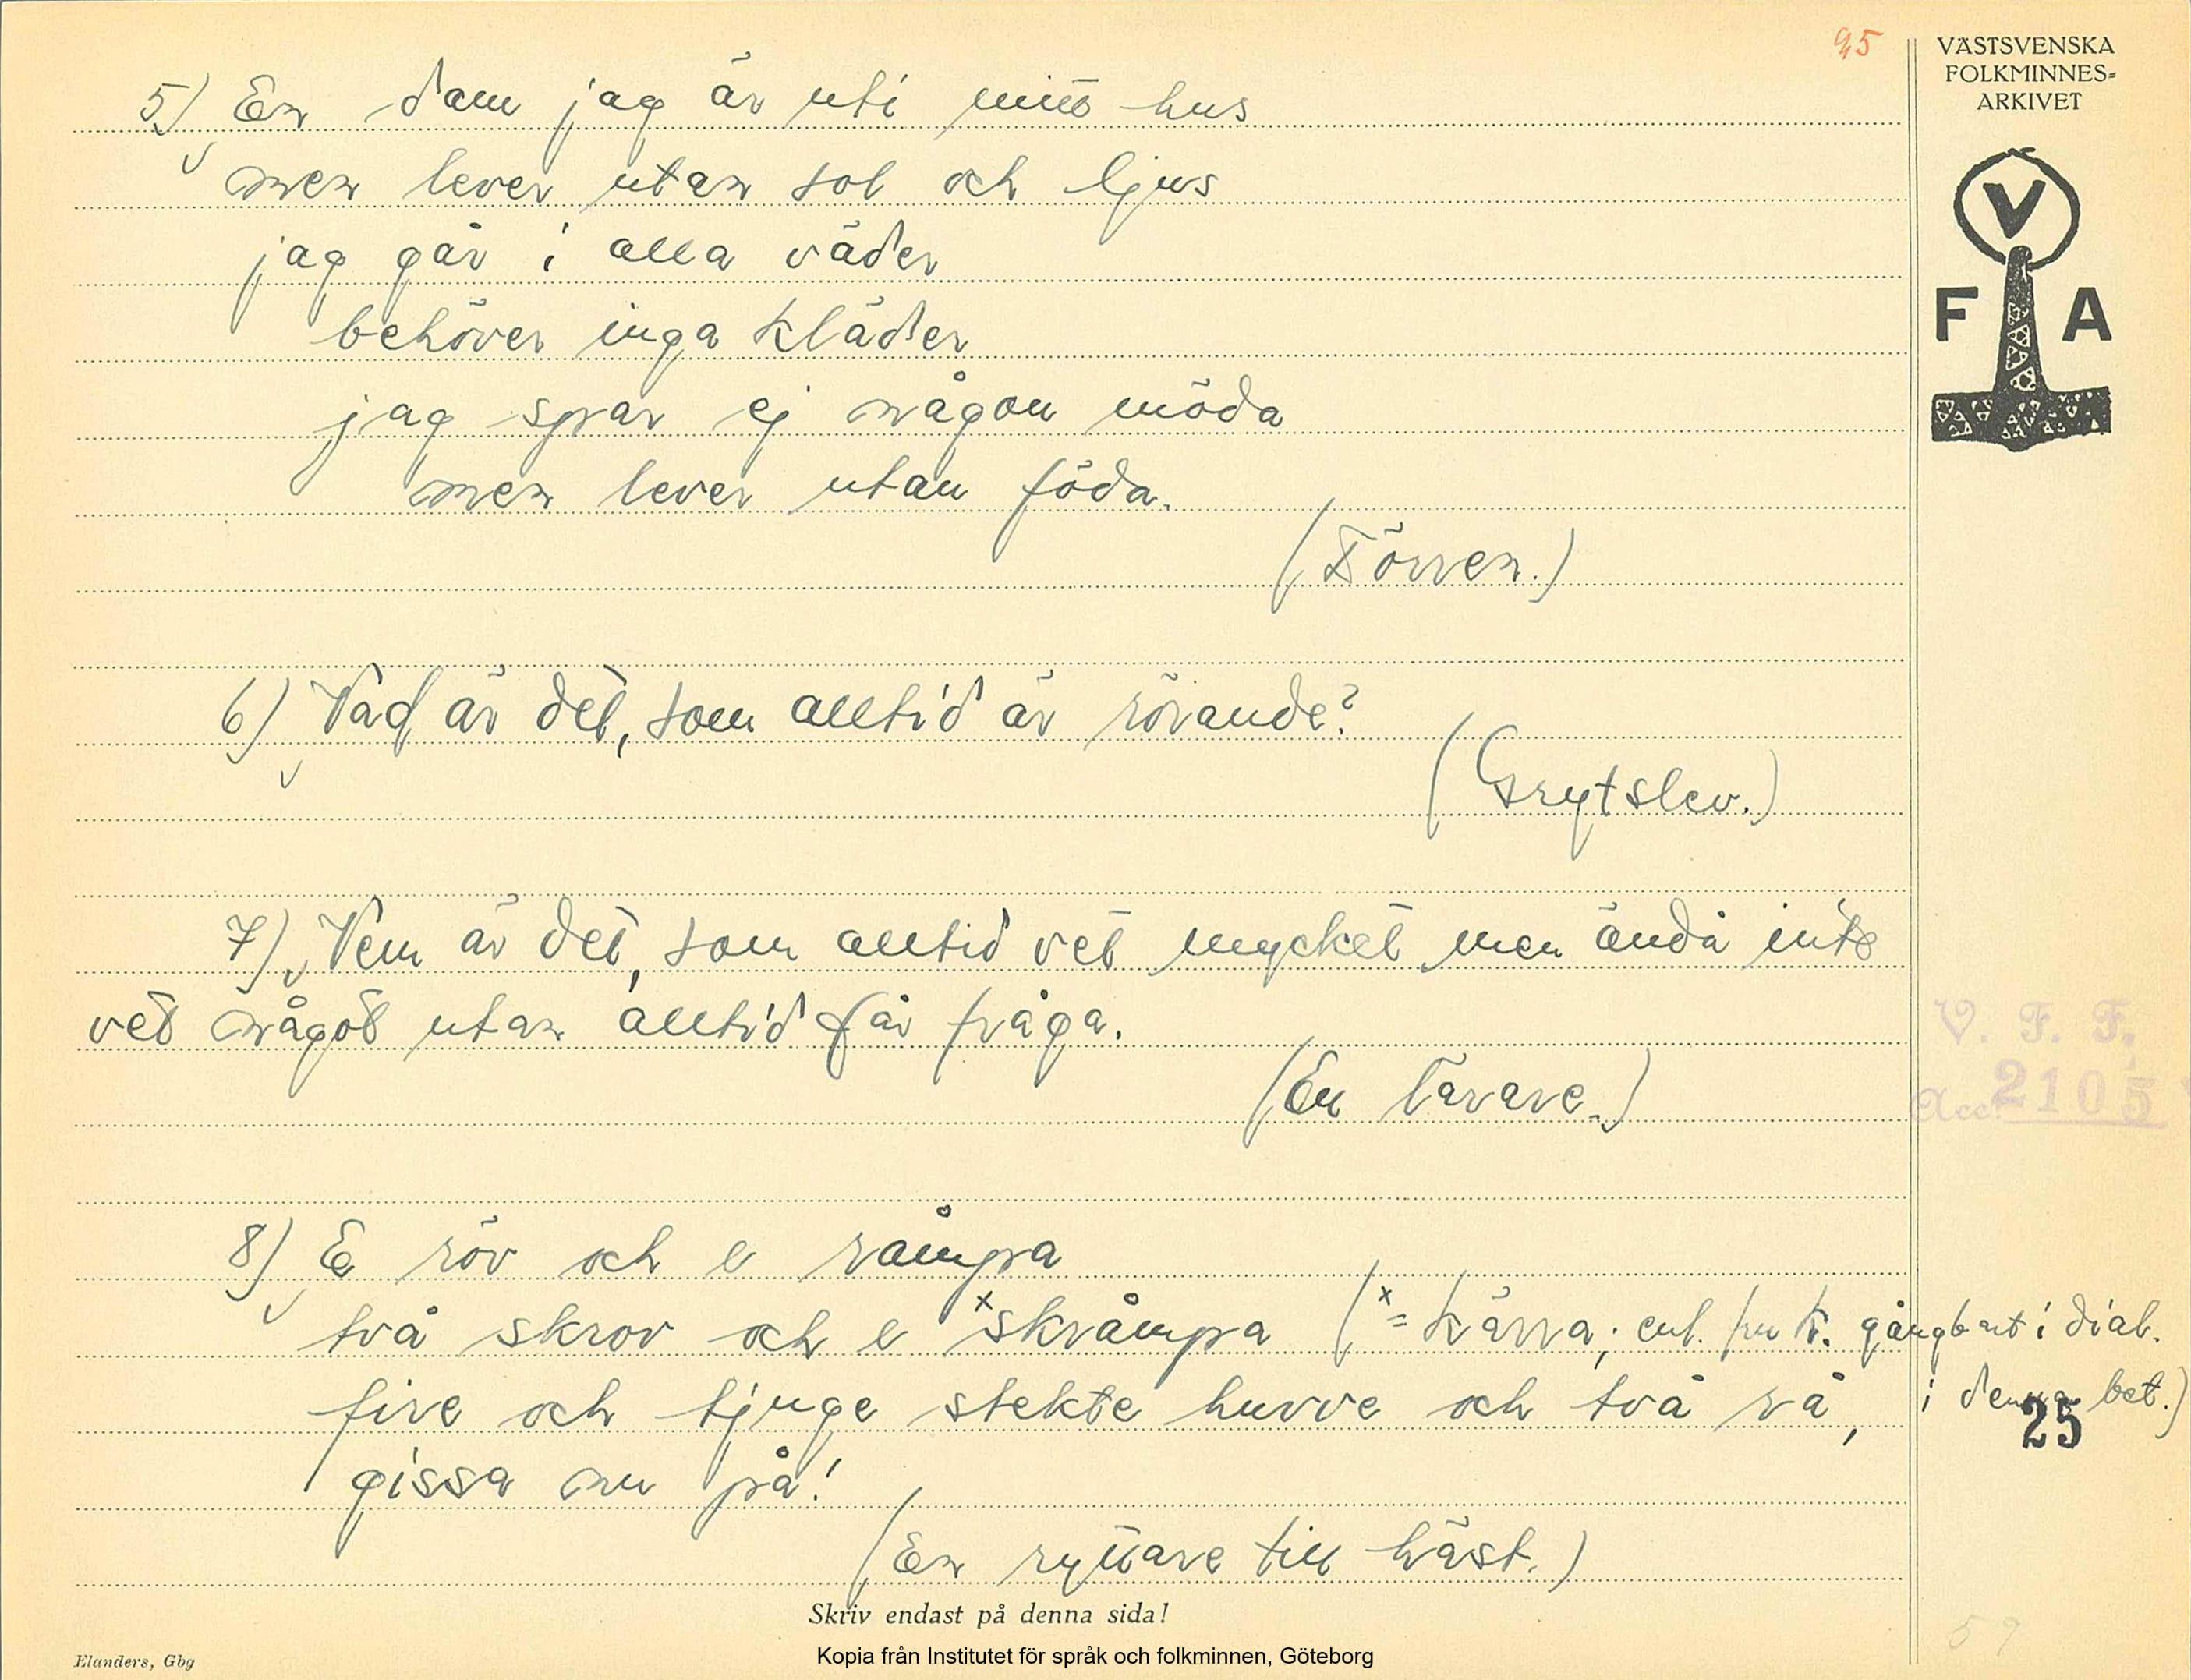 95
VÄSTSVENSKA
FOLKMINNES=
ARKIVET
V
F A
5) En dam jag är uti mitt hus
men lever utan sol och ljus
jag går i alla väder
behöver inga kläder
jag spar ej någon möda
men lever utan föda.
(Törren.)
6) Vad är det, som alltid är rörande?
(Grytslev.)
7) Vem är det, som alltid vet mycket men ändå inte
vet något utan alltid får fråga.
(En lärare.)
V. F. F.
Acc. 2105
8) E röv och e råmpa
två skrov och e xskråmpa (x = kärra; enl. fru K. gångbart i dial.
fire och tjuge stekte huvve och två rå, i denna bet.)
25
gissa nu på!
(En ryttare till häst.)
Skriv endast på denna sida!
Elanders, Gbg
Kopia från Institutet för språk och folkminnen, Göteborg
59